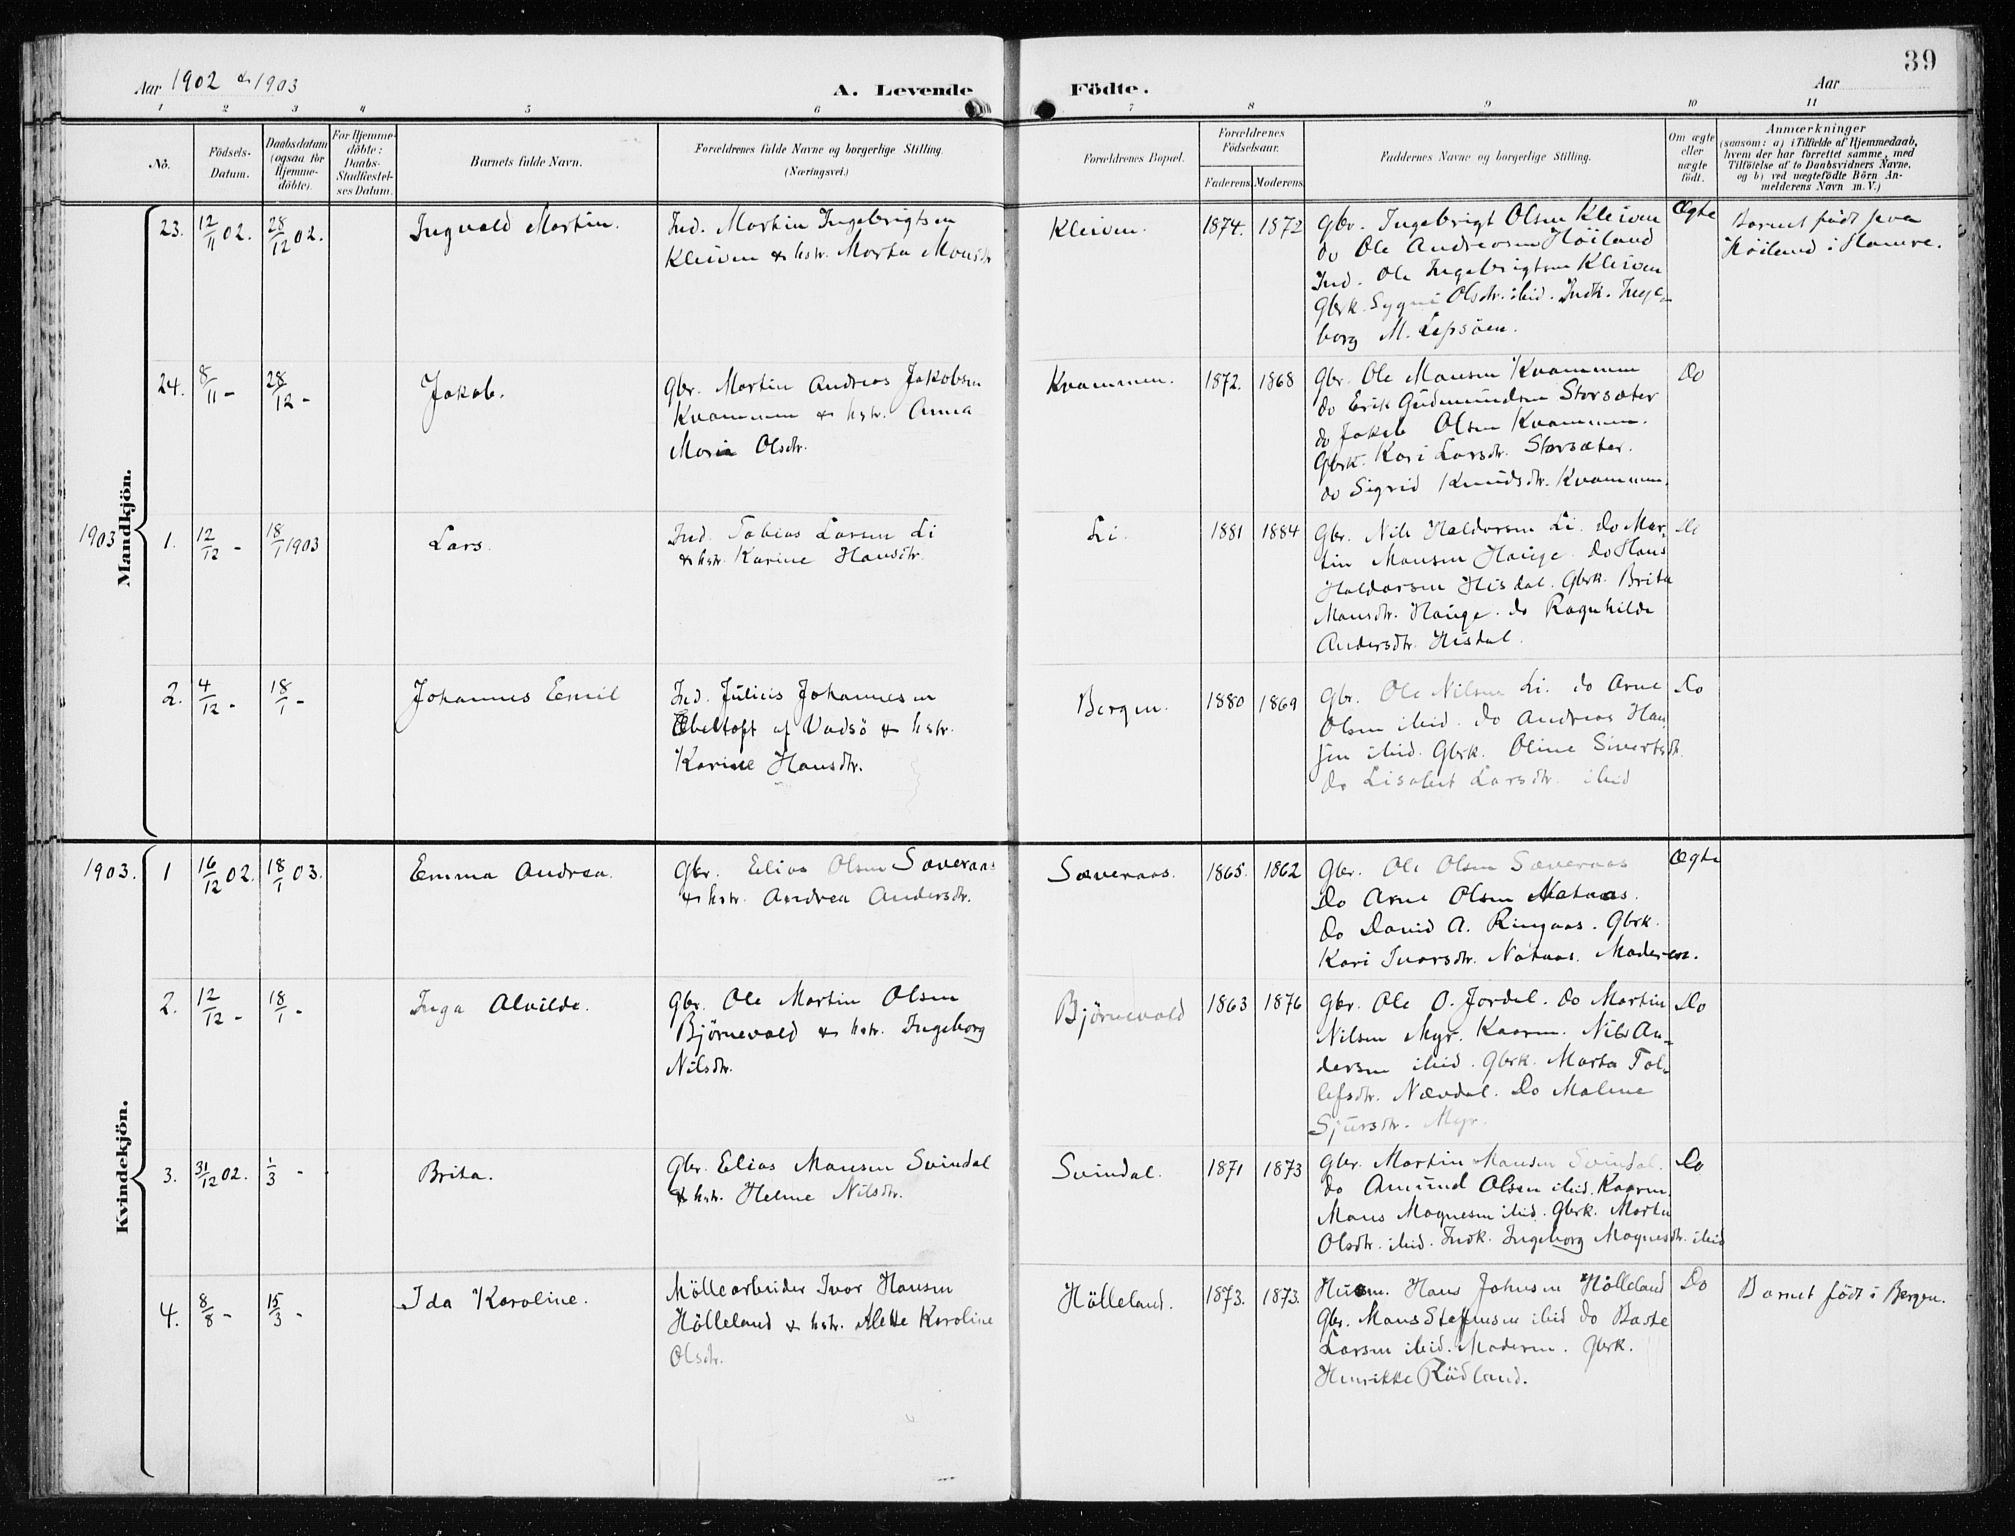 39
Aar 1902 & 1903
A. Levende
Födte.
Aar
1 2 3 4 5 6 7 8 9 10 11
No.
Födsels-
Datum.
Daabsdatum
(ogsaa for
Hjemme-
döbte).
For Hjemme-
döbte:
Daabs-
Stadfæstel-
ses Datum.
Barnets fulde Navn.
Forældrenes fulde Navne og borgerlige Stilling.
(Næringsvei.)
Forældrenes Bopæl.
Forældrenes
Födselsaar.
Faderens. Moderens.
Faddernes Navne og borgerlige Stilling.
Om ægte
eller
uægte
födt.
Anmærkninger
(saasom: a) i Tilfælde af Hjemmedaab,
hvem der har forrettet samme, med
Tilföielse af to Daabsvidners Navne,
og b) ved uægtefödte Börn An-
melderens Navn m. V.)
Mandkjön.
23. 12/11 02. 28/12 02. Ingvald Martin.
Ind. Martin Ingebrigtsen
Kleiven & hstr. Marta Monsdr
Kleiven. 1874. 1872
Gbr. Ingebrigt Olsen Kleiven
do Ole Andersen Höiland
Ind. Ole Ingebrigtsen Kleiven
Gbrk. Sygni Olsdtr. ibid. Indk. Inge-
borg M. Lepsöen.
Ægte
Barnet födt paa
Höiland i Hamre.
24. 8/11 - 28/12 - Jakob.
Gbr. Martin Andreas Jakobsen
Kvammen & hstr. Anna
Maria Olsdtr.
Kvammen. 1872. 1868
Gbr. Ole Monsen Kvammen
do Erik Gudmundsen Storsæter
do Jakob Olsen Kvammen.
Gbrk. Kari Larsdtr. Storsæter.
do Sigrid Knudsdtr. Kvammen.
Do
1903
1. 12/12 - 18/1 1903 Lars.
Ind. Tobias Larsen Li
& hstr. Karine Hansdtr.
Li. 1881 1884
Gbr. Nils Haldorsen Li. do Mar-
tin Monsen Hauge. Do Hans
Haldorsen Hisdal. Gbrk. Brita
Monsdtr. Hauge. do Ragnhilde
Andersdtr. Hisdal.
Do
2. 4/12 - 18/1 - Johannes Emil
Ind. Julius Johannesen
Ebeltoft af Vadsö & hstr.
Karine Hansdtr.
Bergen. 1880 1869
Gbr. Ole Nilsen Li. do Arne
Olsen ibid. do Andreas Han
sen ibid. Gbrk. Oline Sivertsdtr.
do Lisabet Larsdtr. ibid
Do
Kvindekjön.
1903. 1 16/12 02. 18/1 03. Emma Andrea.
Gbr. Elias Olsen Sæveraas
& hstr. Andrea Andersdtr.
Sæveraas. 1865. 1862
Gbr. Ole Olsen Sæveraas
Do Arne Olsen Nataas.
Do David A. Ringaas. Gbrk.
Kari Ivarsdtr. Nataas. Moderen.
Ægte
2. 12/12 - 18/1 - Inga Alvilde.
Gbr. Ole Martin Olsen
Björnevold & hstr. Ingeborg
Nilsdtr.
Björnevold 1863 1876
Gbr. Ole O. Jordal. do Martin
Nilsen Myr. Kaarm. Nils An-
dersen ibid. Gbrk. Marta Tol-
lefsdtr. Nævdal. Do Malene
Sjursdtr. Myr.
Do
3. 31/12 02. 1/3 - Brita.
Gbr. Elias Monsen Svindal
& hstr. Helene Nilsdtr.
Svindal. 1871 1873
Gbr. Martin Monsen Svindal.
do Amund Olsen ibid. Kaarm.
Mons Magnesen ibid. Gbrk. Marta
Olsdtr. ibid. Indk. Ingeborg Magnesdtr. ibid
Do
4. 8/8 - 15/3 - Ida Karoline.
Möllearbeider Ivar Hansen
Hölleland & hstr. Alette Karoline
Olsdtr.
Hölleland. 1873. 1873.
Husm. Hans Johnsen Hölleland
Gbr. Mons Steffensen ibid do Baste
Larsen ibid. Moderen. Gbrk.
Henrikke Rödland.
Do
Barnet födt i Bergen.